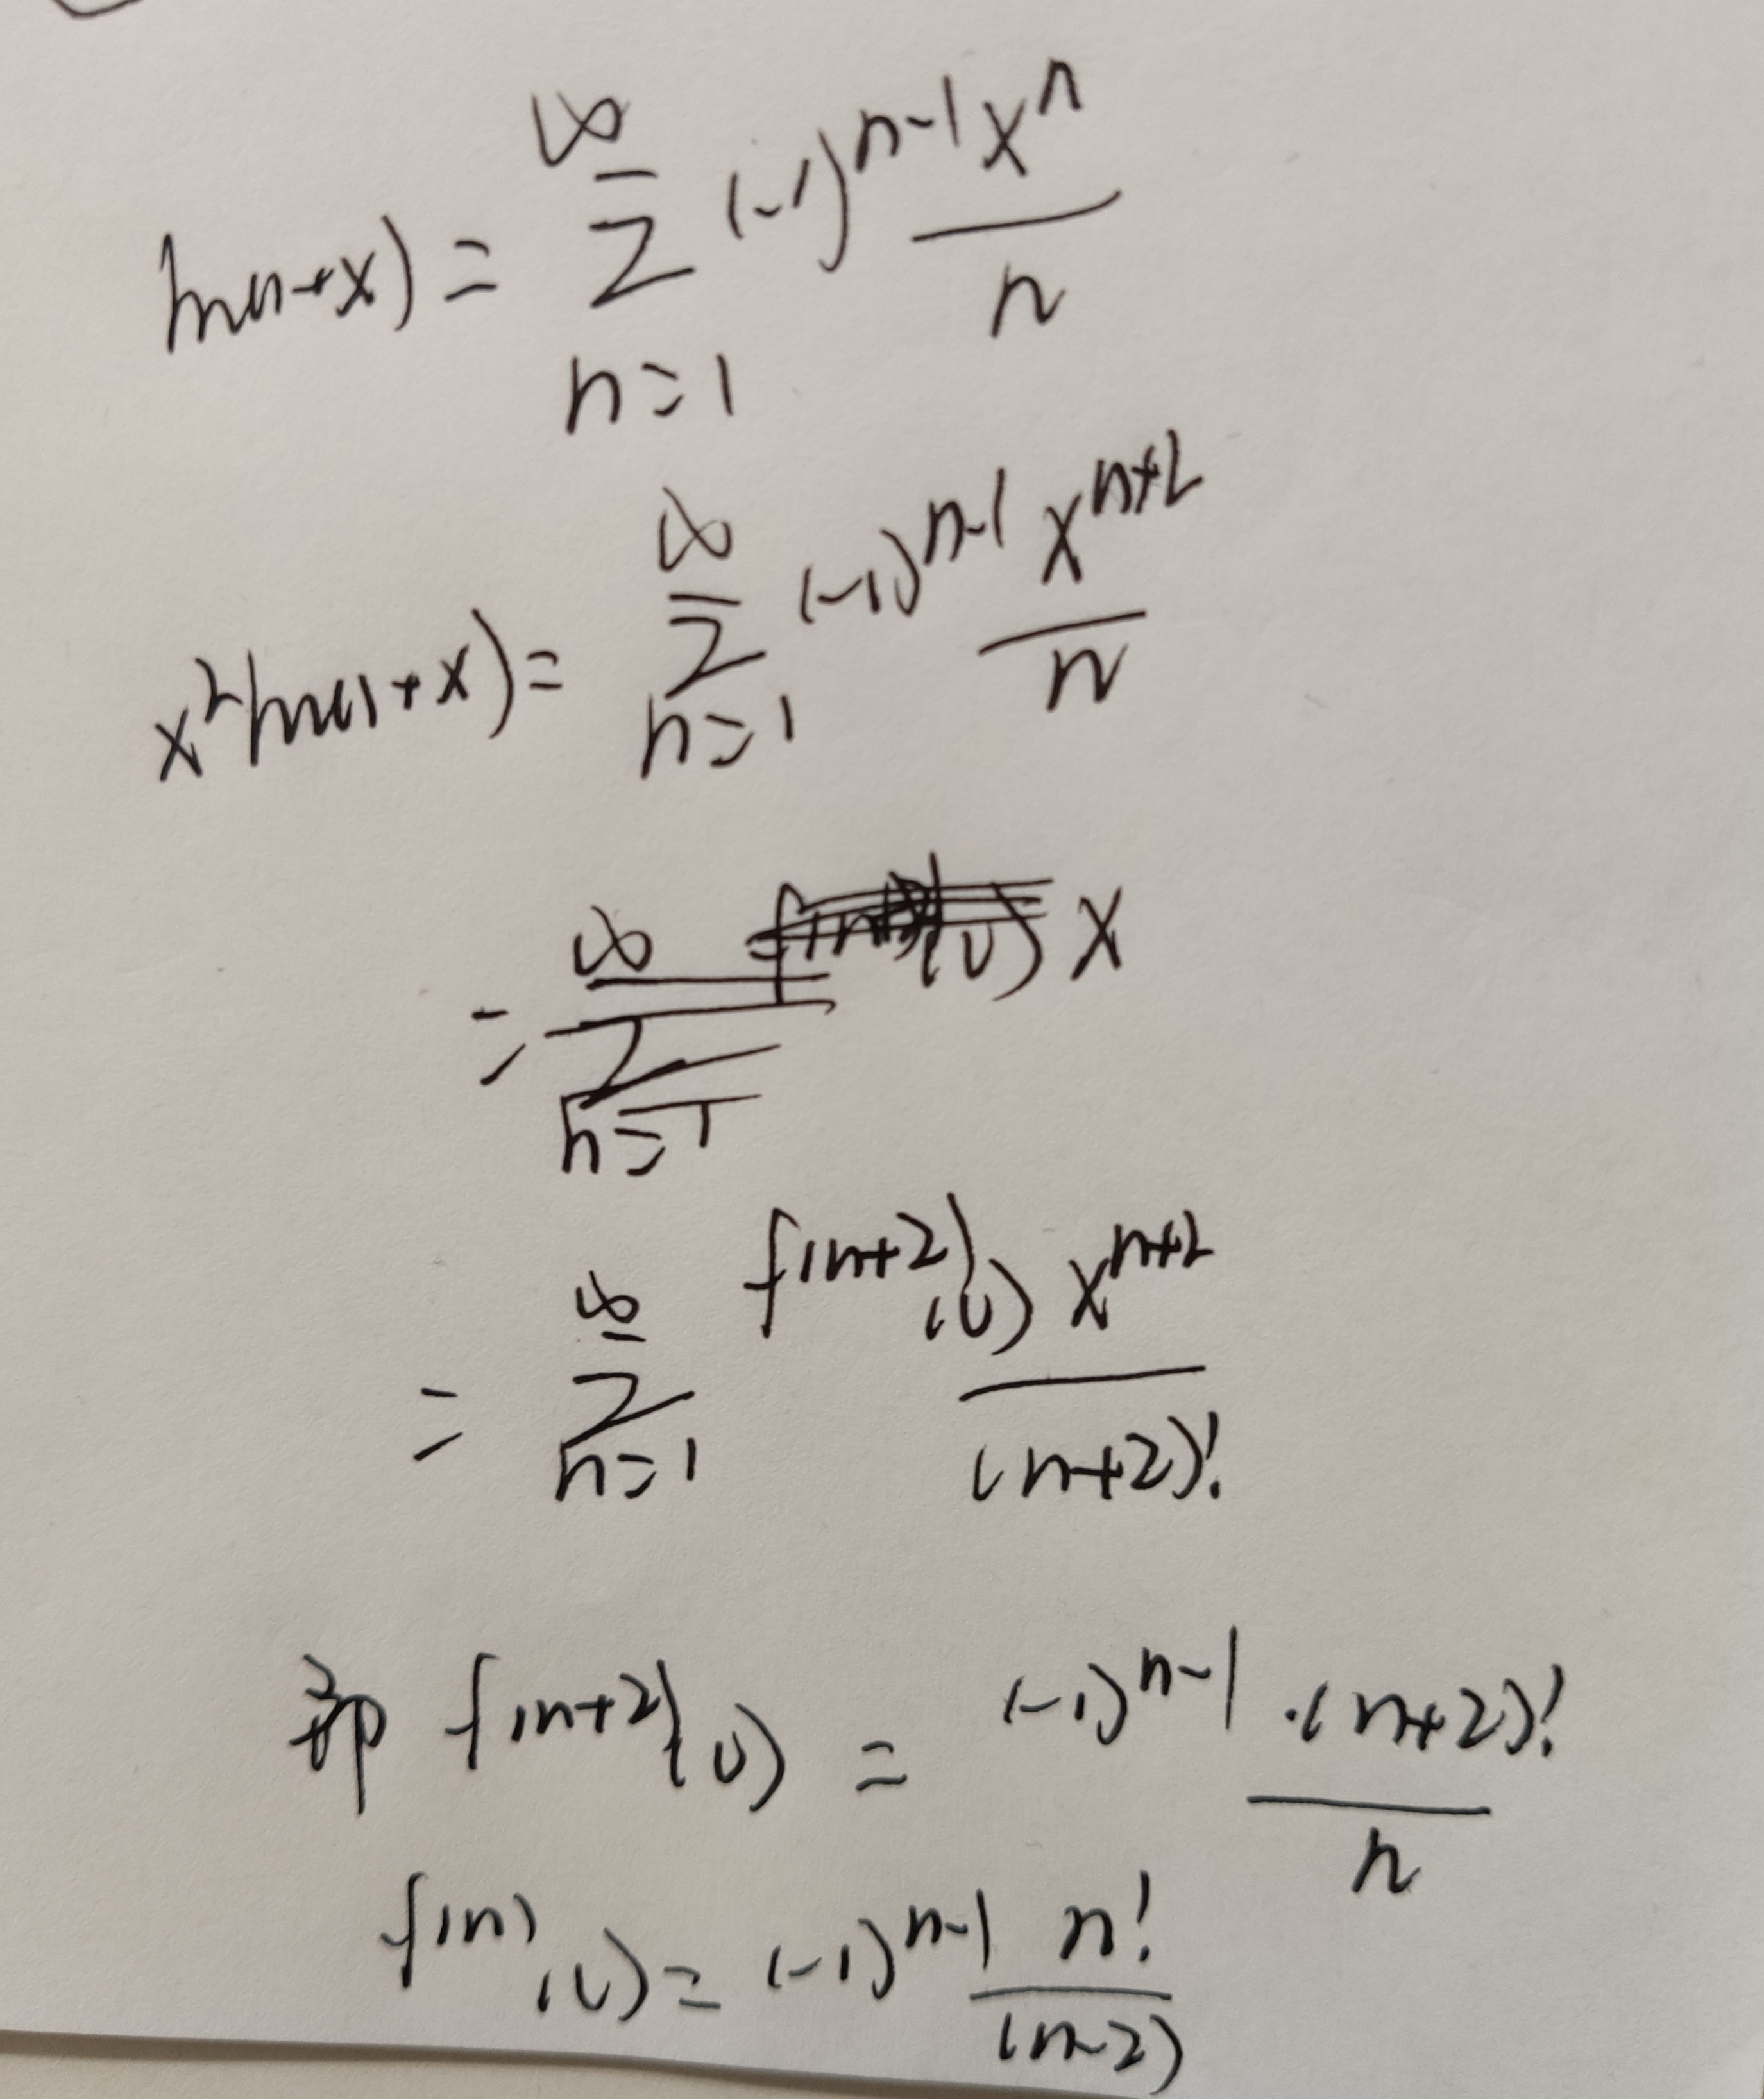 ln(1+x) = ∑_{n=1}^{∞} (-1)^{n-1} x^n / n
x² ln(1+x) = ∑_{n=1}^{∞} (-1)^{n-1} x^{n+2} / n
= ∑_{n=1}^{∞} f^{(n+2)}(0) x
= ∑_{n=1}^{∞} f^{(n+2)}(0) x^{n+2} / (n+2)!
即 f^{(n+2)}(0) = (-1)^{n-1} · (n+2)! / n
f^{(n)}(0) = (-1)^{n-1} n! / (n-2)